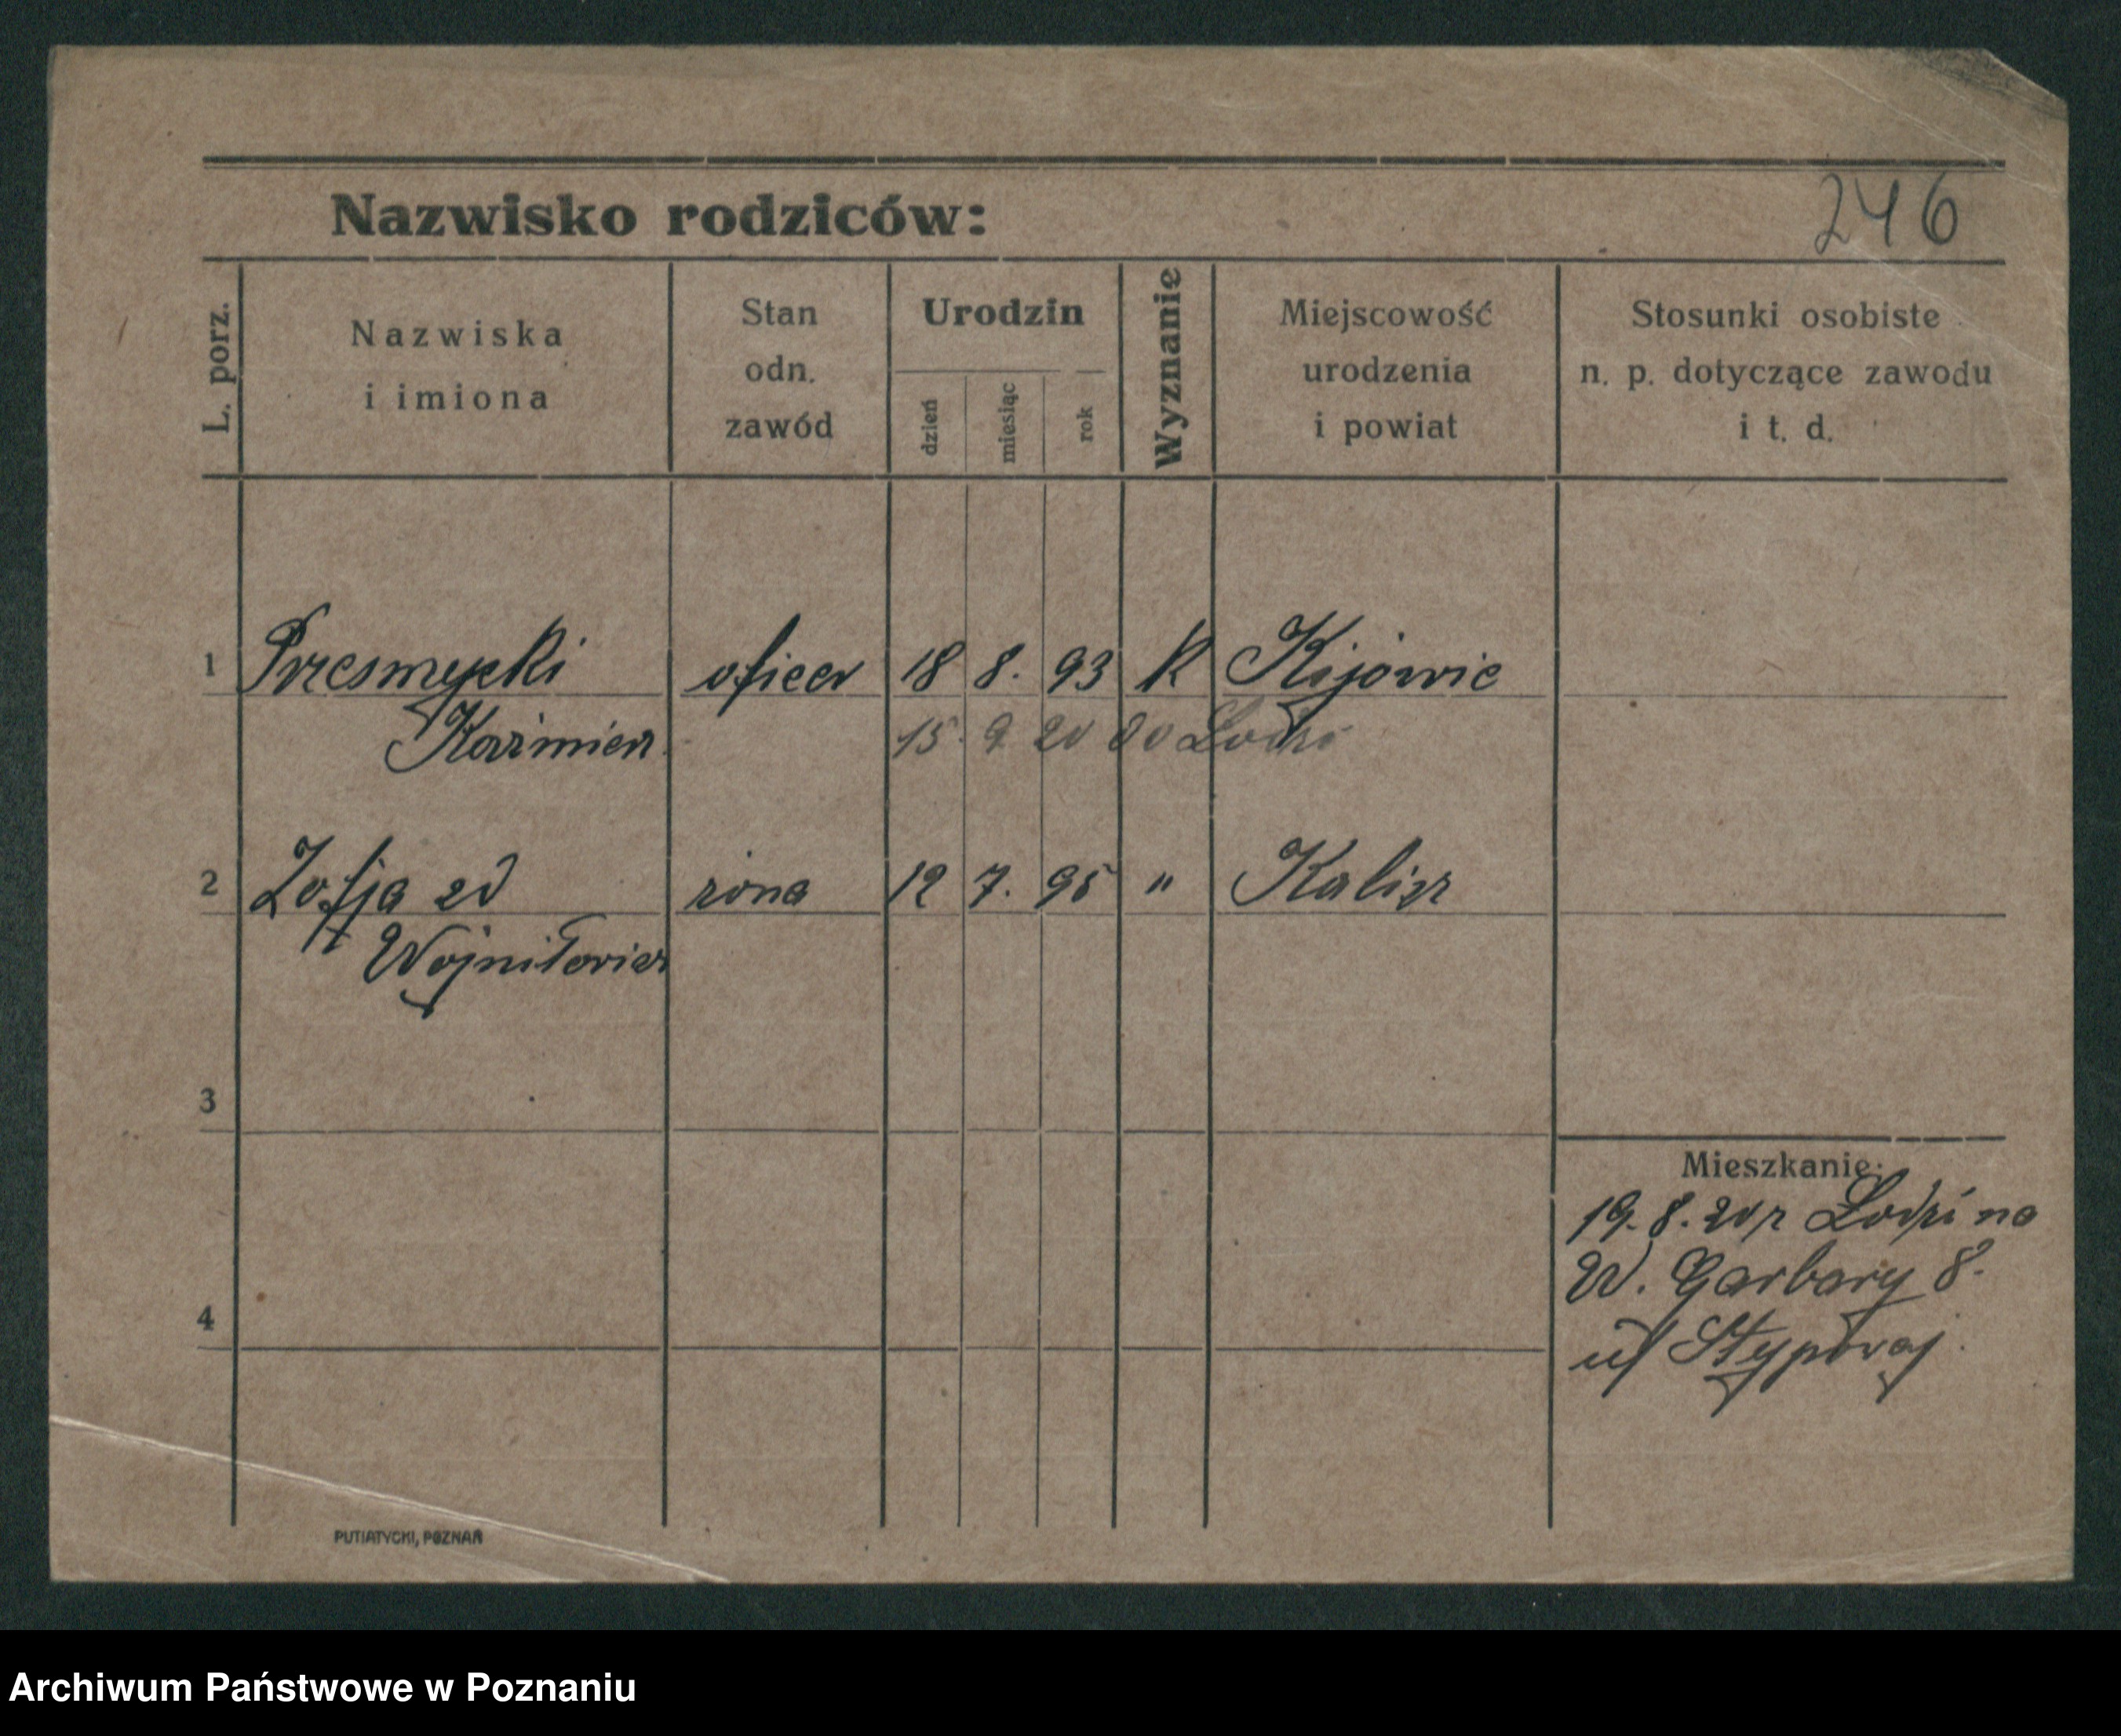 Nazwisko rodziców:
246
L. porz.
Nazwiska
i imiona
Stan
odn.
zawód
Urodzin
dzień
miesiąc
rok
Wyznanie
Miejscowość
urodzenia
i powiat
Stosunki osobiste
n. p. dotyczące zawodu
i t. d.
1 Przesmycki oficer 18 8. 93 K Kijowie
Kazimierz 15. 9 20 do Łodzi
2 Zofja zd żona 12 7. 95 " Kalisz
Wojniłowicz
3
Mieszkanie:
19. 8. 20 z Łodzi na
W. Garbary 8.
4
u/
PUTIATYCKI, POZNAŃ
Archiwum Państwowe w Poznaniu